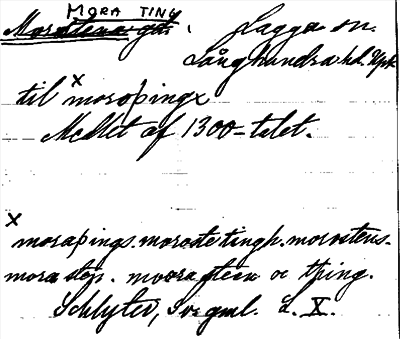 MORA TING
Lagga sn.
Långhundra hd. Upl.
til ˣ moropingx
Medlet af 1300-talet.
x
morapings. morastetingh. morstens.
mora sten. moora steen oc thing.
Schlyter, Sv. gml. L. X.